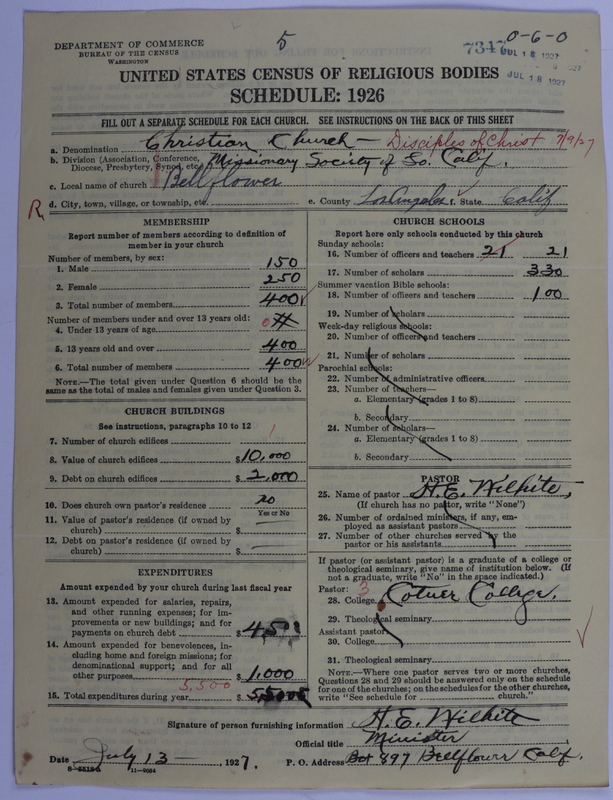 DEPARTMENT OF COMMERCE
BUREAU OF THE CENSUS
WASHINGTON
5
7347
0-6-0
JUL 18 1927
JUL 18 1927
UNITED STATES CENSUS OF RELIGIOUS BODIES
SCHEDULE: 1926
FILL OUT A SEPARATE SCHEDULE FOR EACH CHURCH. SEE INSTRUCTIONS ON THE BACK OF THIS SHEET
a. Denomination Christian Church — Disciples of Christ 7/9/27
b. Division (Association, Conference, Diocese, Presbytery, Synod, etc.) Missionary Society of So. Calif.
c. Local name of church Bellflower
R
d. City, town, village, or township, etc. e. County Los Angeles f. State Calif
MEMBERSHIP
Report number of members according to definition of
member in your church
Number of members, by sex:
1. Male 150
2. Female 250
3. Total number of members 400
Number of members under and over 13 years old:
4. Under 13 years of age 0
5. 13 years old and over 400
6. Total number of members 400
NOTE.—The total given under Question 6 should be the
same as the total of males and females given under Question 3.
CHURCH BUILDINGS
See instructions, paragraphs 10 to 12
7. Number of church edifices 1
8. Value of church edifices $10,000
9. Debt on church edifices $2,000
10. Does church own pastor's residence no
Yes or No
11. Value of pastor's residence (if owned by
church) $ —
12. Debt on pastor's residence (if owned by
church) $ —
EXPENDITURES
Amount expended by church during last fiscal year
13. Amount expended for salaries, repairs,
and other running expenses; for im-
provements or new buildings; and for
payments on church debt $
14. Amount expended for benevolences, in-
cluding home and foreign missions; for
denominational support; and for all
other purposes $1,000
5,500
15. Total expenditures during year $
CHURCH SCHOOLS
Report here only schools conducted by this church
Sunday schools:
16. Number of officers and teachers 21 21
17. Number of scholars 330
Summer vacation Bible schools:
18. Number of officers and teachers 100
19. Number of scholars
Week-day religious schools:
20. Number of officers and teachers
21. Number of scholars
Parochial schools:
22. Number of administrative officers
23. Number of teachers—
a. Elementary (grades 1 to 8)
b. Secondary
24. Number of scholars—
a. Elementary (grades 1 to 8)
b. Secondary
PASTOR
25. Name of pastor H. E. Wilhite,
(If church has no pastor, write "None")
26. Number of ordained ministers, if any, em-
ployed as assistant pastors
27. Number of other churches served by the
pastor or his assistants
If pastor (or assistant pastor) is a graduate of a college or
theological seminary, give name of institution below. (If
not a graduate, write "No" in the space indicated.)
Pastor: 3
28. College Cotner College.
29. Theological seminary
Assistant pastor:
30. College
31. Theological seminary
NOTE.—Where one pastor serves two or more churches,
Questions 28 and 29 should be answered only on the schedule
for one of the churches; on the schedules for the other churches,
write "See schedule for church."
Signature of person furnishing information H. E. Wilhite
Official title Minister
Date July 13 — , 1927. P. O. Address Box 897 Bellflower Calif.
11—9054